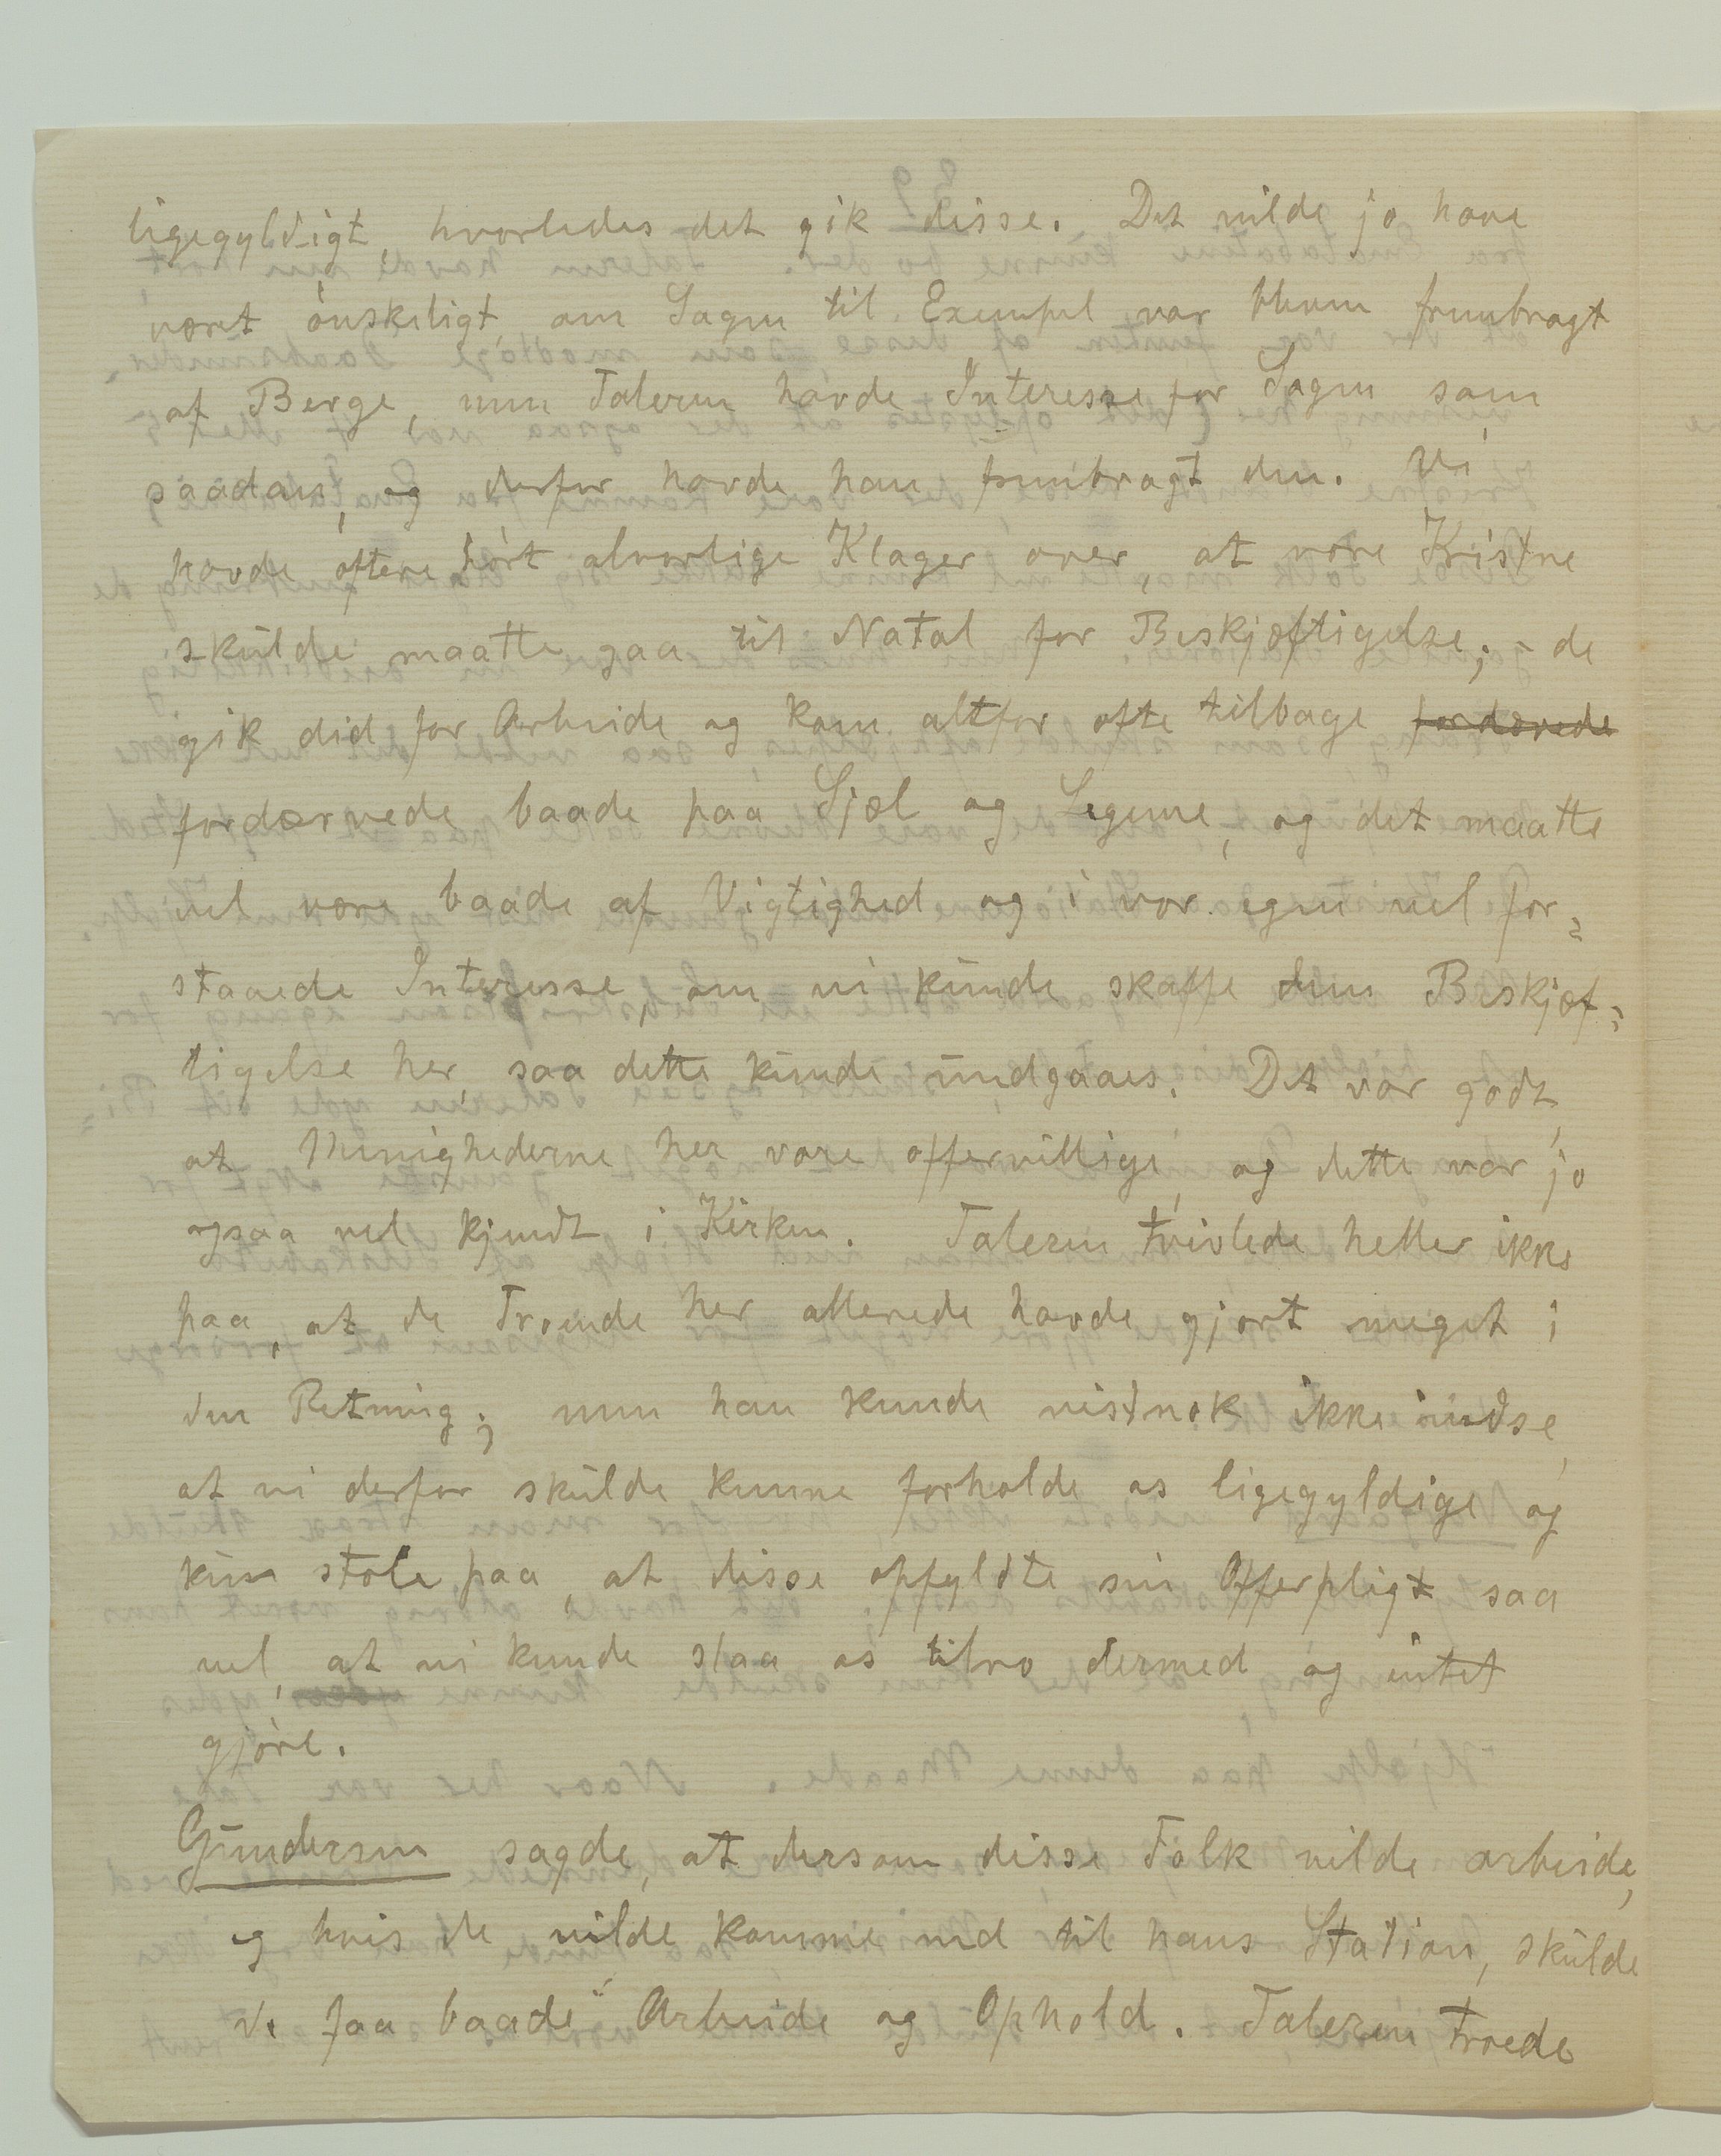 ligegyldigt, hvorledes det gik disse. Det vilde jo have
været ønskeligt, om Sagen til Exempel var bleven frembragt
af Berge, men Taleren havde Interesse for Sagen som
saadan, og derfor havde han frembragt den. Vi
havde oftere hørt alvorlige Klager over, at vore Kristne
skulde maatte gaa til Natal for Beskjæftigelse; - de
gik did for Arbeide og kom altfor ofte tilbage fordærede
fordærvede baade paa Sjæl og Legeme, og det maatte
vel være baade af Vigtighed og i vor egen vel for=
staaede Interesse, om vi kunde skaffe dem Beskjæf=
tigelse her, saa dette kunde undgaaes. Det var godt,
at Menighederne her vare offervillige, og dette var jo
ogsaa vel kjendt i Kirken. Taleren tvivlede heller ikke
paa, at de Troende her allerede havde gjort meget i
den Retning; men han kunde vistnok ikke indse,
at vi derfor skulde kunne forholde os ligegyldige og
kun stole paa, at disse opfyldte sin Offerpligt saa
vel, at vi kunde slaa os tilro dermed og intet
gjøre.
Gundersen sagde, at dersom disse Folk vilde arbeide,
og hvis de vilde komme ned til hans Station, skulde
de faa baade Arbeide og Ophold. Taleren troede